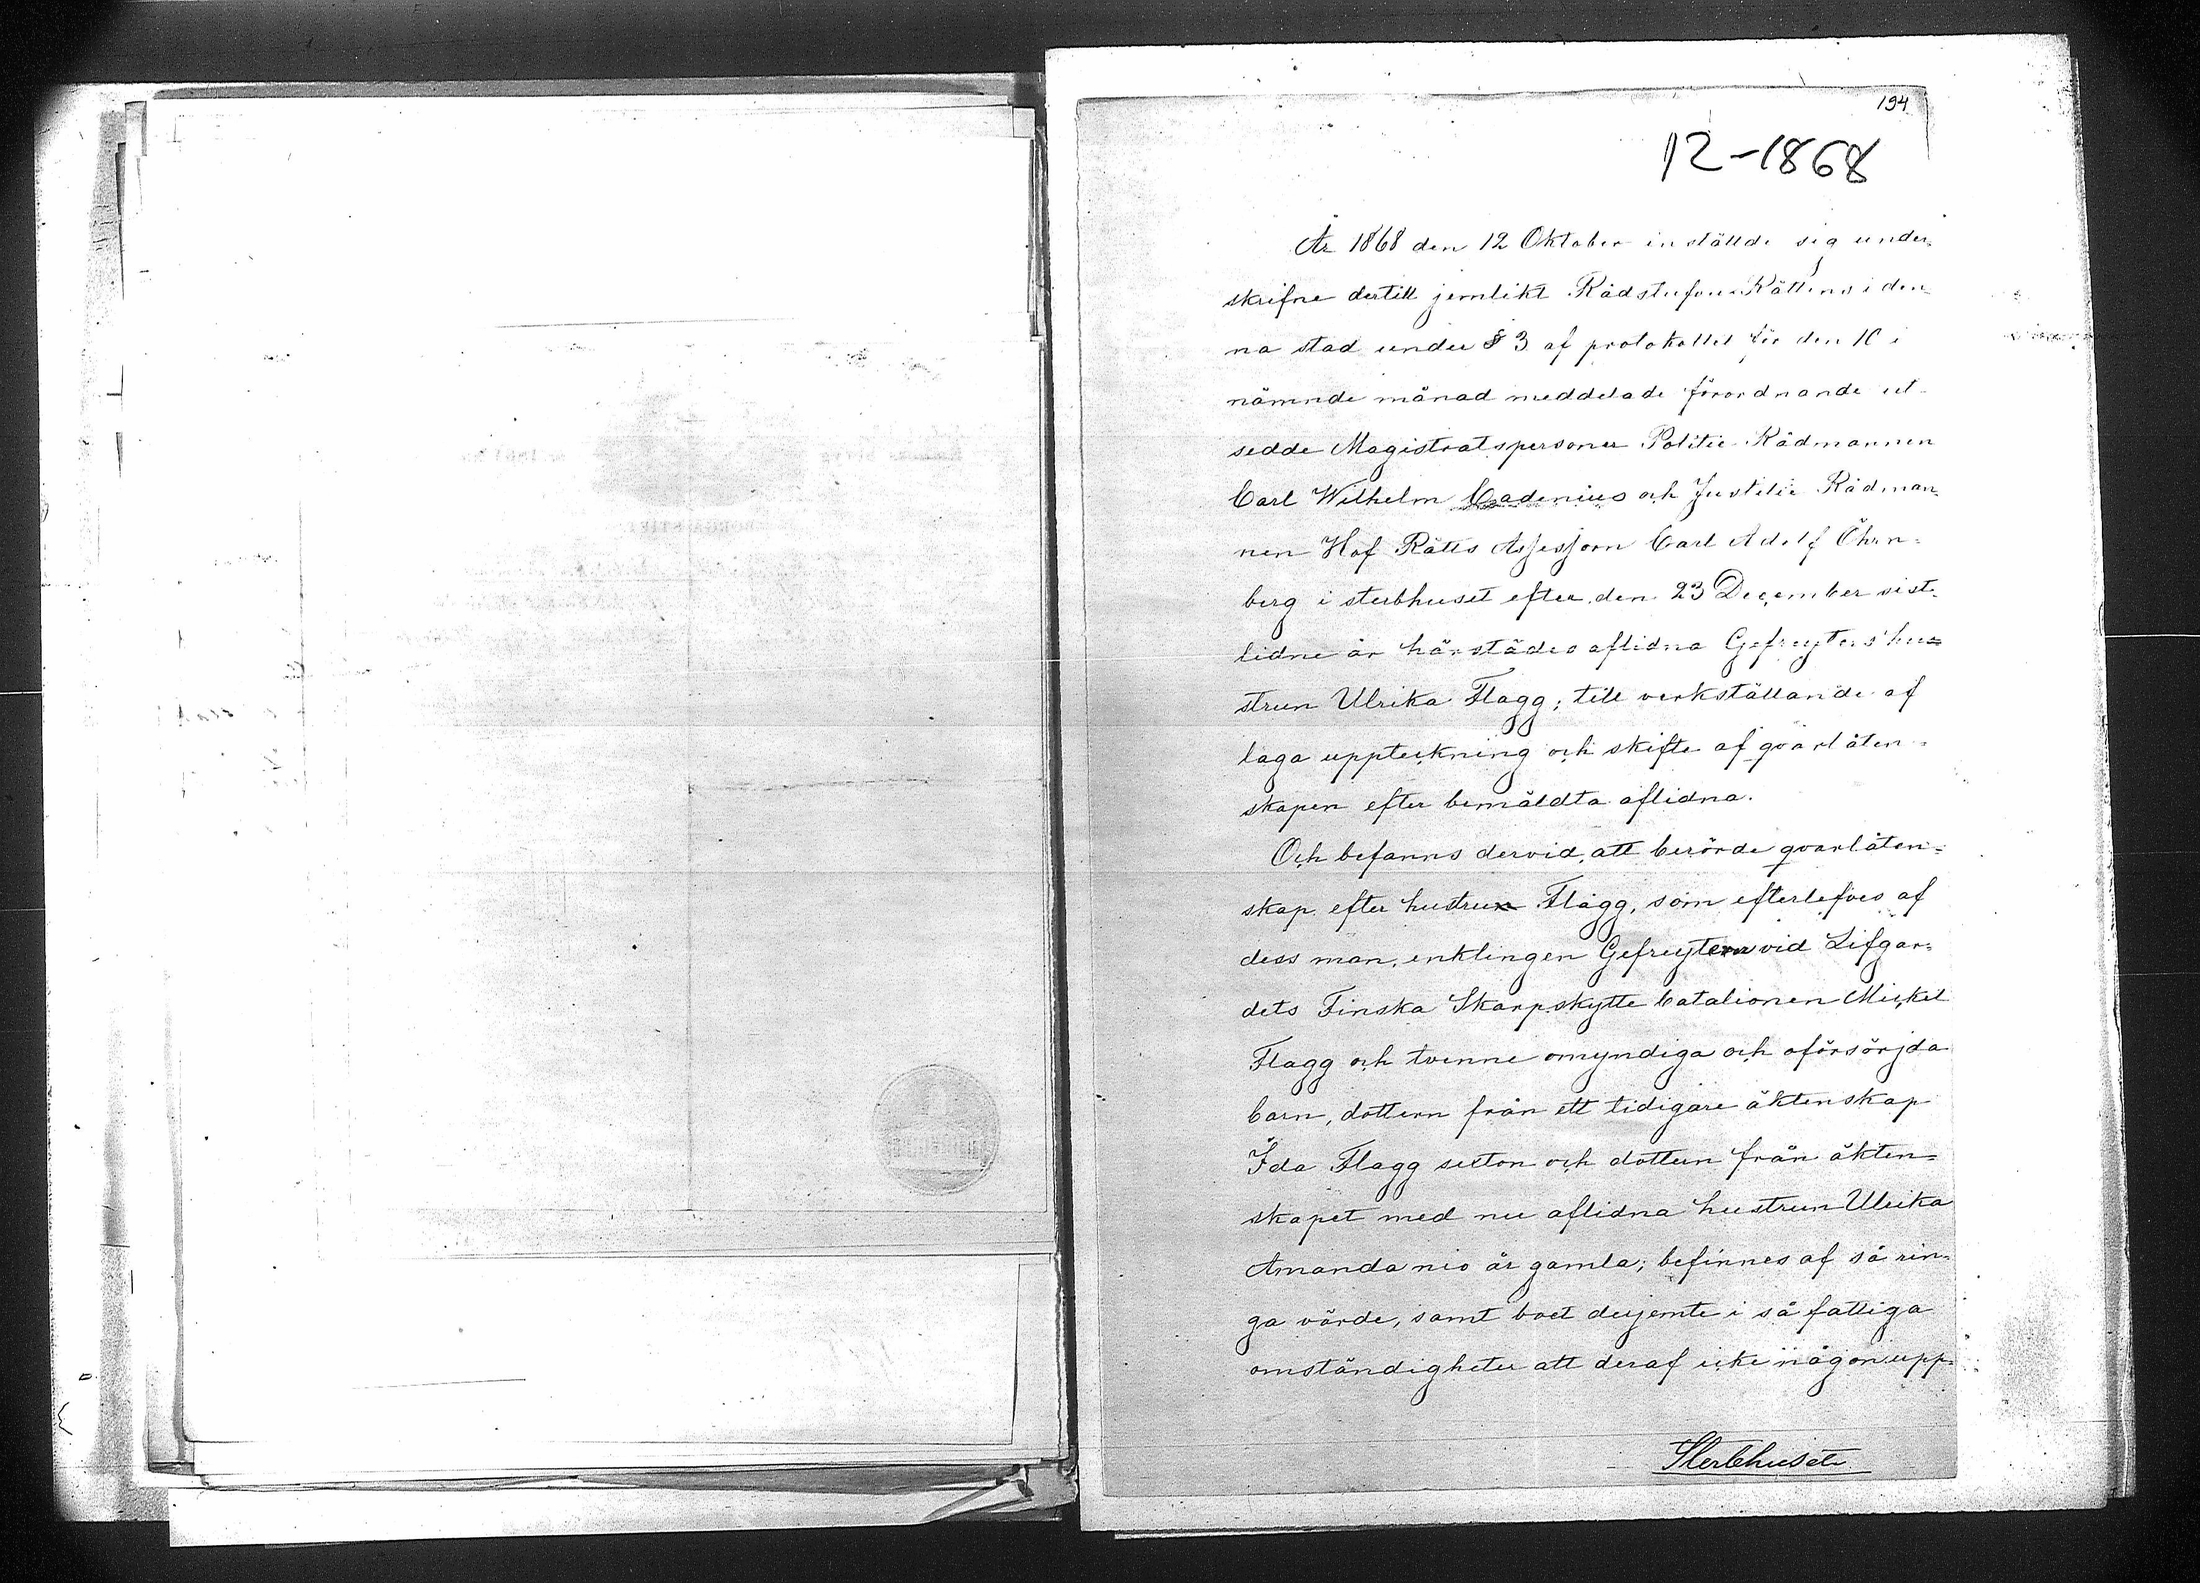 194
12-1868
År 1868 den 12 Oktober inställde sig under-
skrifne dertill jemlikt Rådstufvu Rättens i den-
na stad under § 3 af protokollet för den 10 i
nämnde månad meddelade förordnande ut-
sedde Magistratspersoner Politie Rådmannen
Carl Wilhelm Cadenius och Justitie Rådman-
nen Hof Rätts Assessorn Carl Adolf Öhrn-
berg i sterbhuset efter den 23 December sist-
lidne år härstädes aflidna Gefreyters hu-
strun Ulrika Flagg; till verkställande af
laga uppteckning och skifte af qvarlåten-
skapen efter bemäldta aflidna.
Och befanns dervid, att berörde qvarlåten-
skap efter hustrun Flagg, som efterlefves af
dess man, enklingen Gefreytern vid Lifgar-
dets Finska Skarpskytte bataljonen Mickel
Flagg och tvenne omyndiga och oförsörjda
barn, dottern från ett tidigare äktenskap
Ida Flagg sexton och dottern från äkten-
skapet med nu aflidna hustrun Ulrika
Amanda nio år gamla; befinnes af så rin-
ga värde, samt boet derjemte i så fattiga
omständigheter att deraf icke någon upp-
Sterbhuset